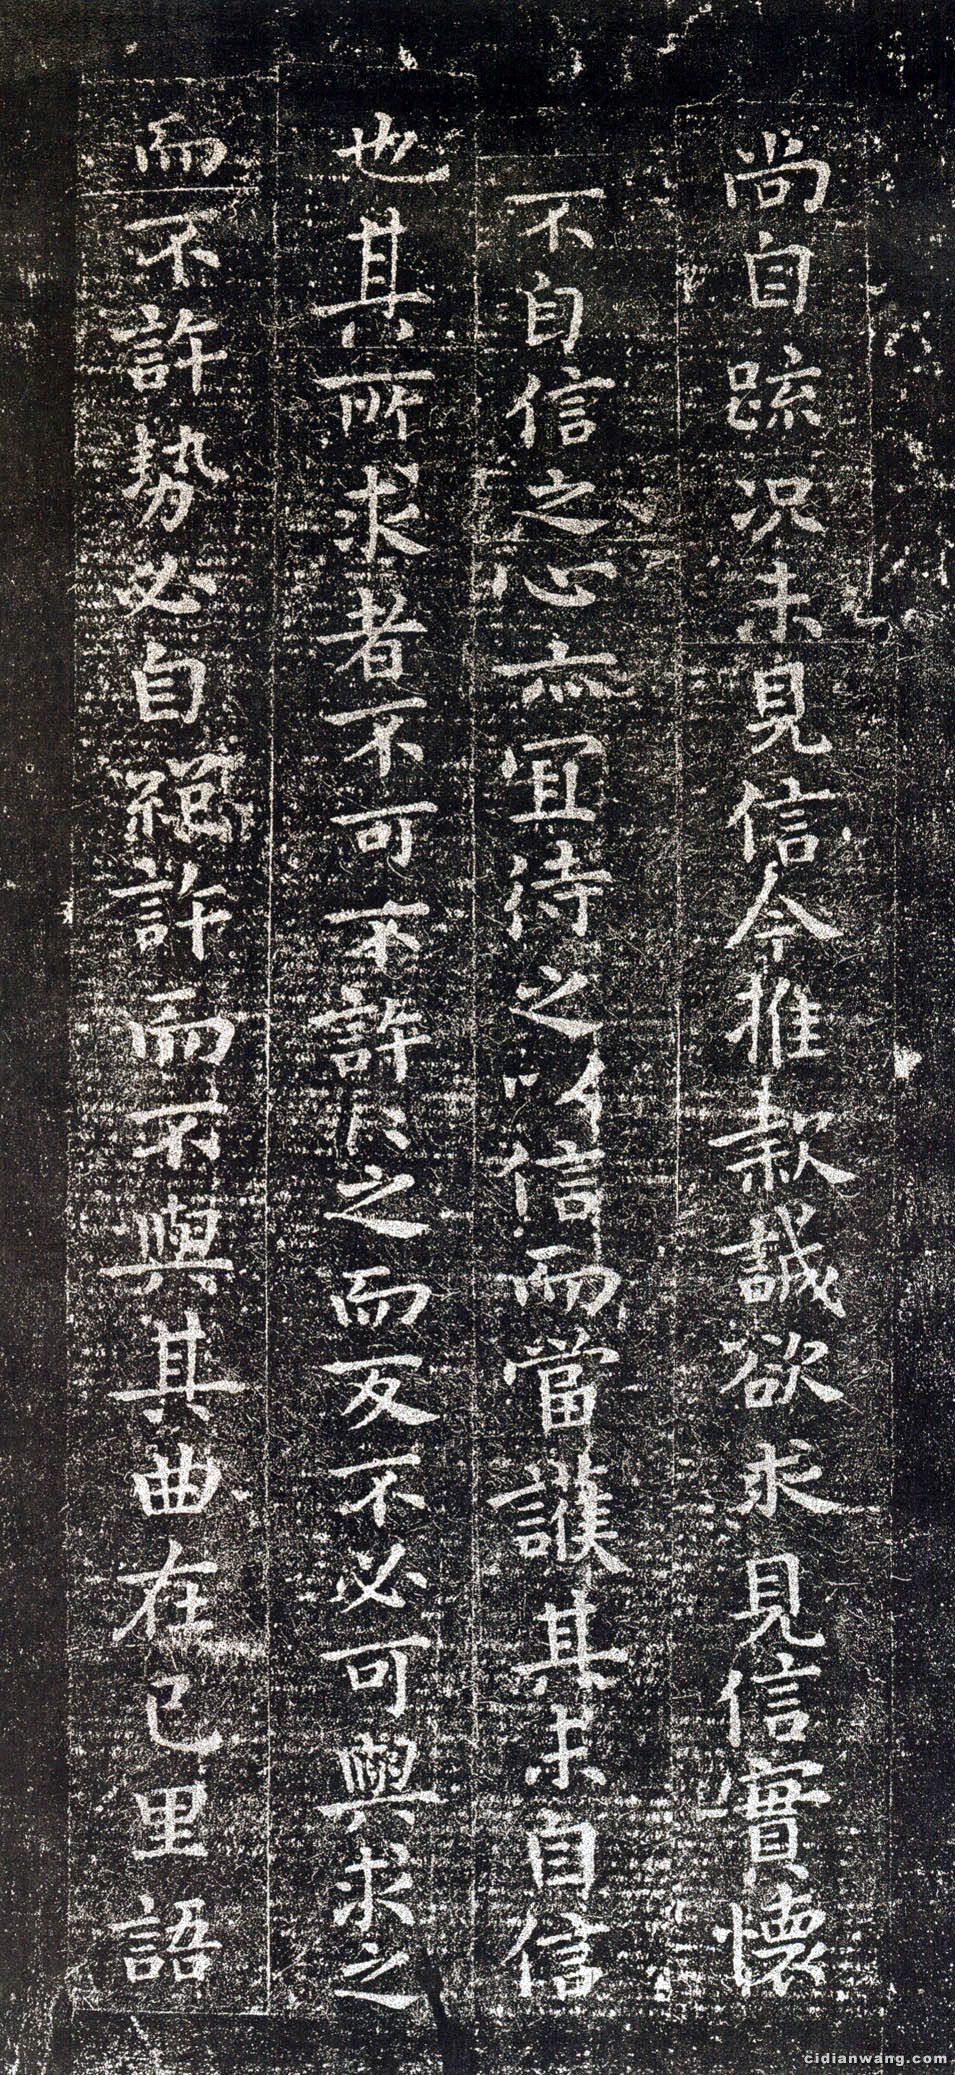 尚自疏况未見信今推款誠欲求見信實懷
不自信之心亦宜待之以信而當護其未自信
也其所求者不可不許〻之而反不必可與求之
而不許勢必自絕許而不與其曲在己里語
cidianwang.com